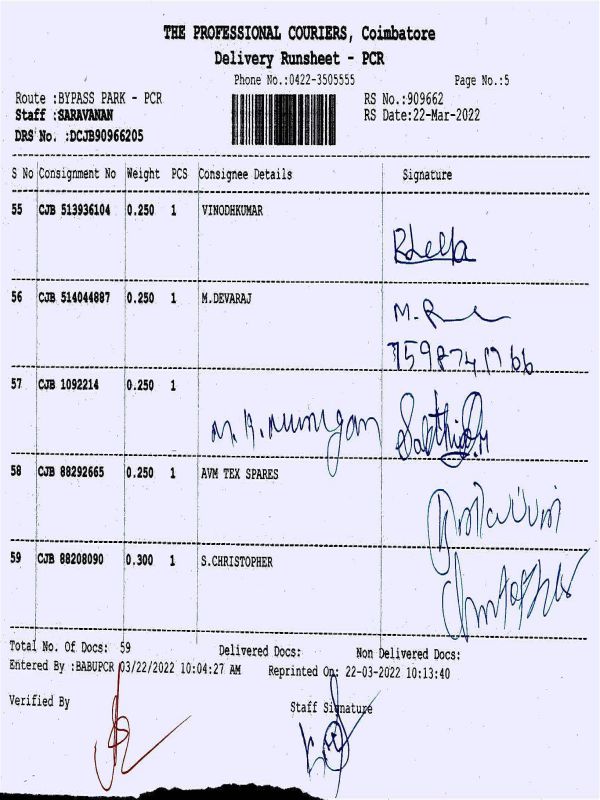 THE PROFESSIONAL COURIERS, Coimbatore
Delivery Runsheet - PCR
Phone No.:0422-3505555 Page No.:5
Route :BYPASS PARK - PCR RS No.:909662
Staff :SARAVANAN RS Date:22-Mar-2022
DRS No. :DCJB90966205
S No Consignment No Weight PCS Consignee Details Signature
55 CJB 513936104 0.250 1 VINODHKUMAR
56 CJB 514044887 0.250 1 M.DEVARAJ M.
57 CJB 1092214 0.250 1
M. A. Murugan
58 CJB 88292665 0.250 1 AVM TEX SPARES
59 CJB 88208090 0.300 1 S.CHRISTOPHER
Total No. Of Docs: 59 Delivered Docs: Non Delivered Docs:
Entered By :BABUPCR 03/22/2022 10:04:27 AM Reprinted On: 22-03-2022 10:13:40
Verified By Staff Signature